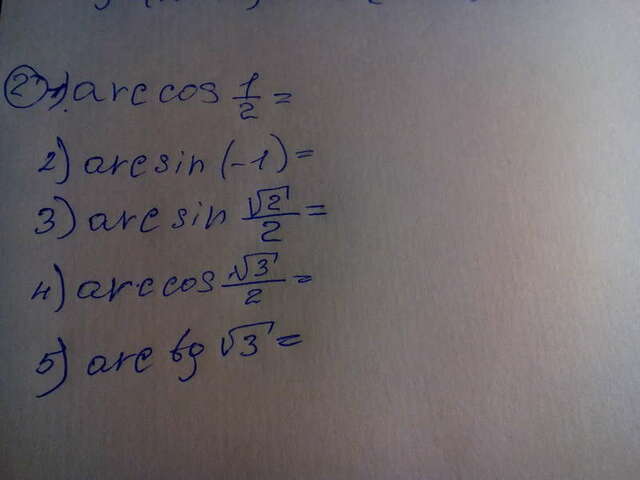 ② 1) arccos 1/2 =
2) arcsin (-1) =
3) arcsin √2/2 =
4) arccos √3/2 =
5) arctg √3 =